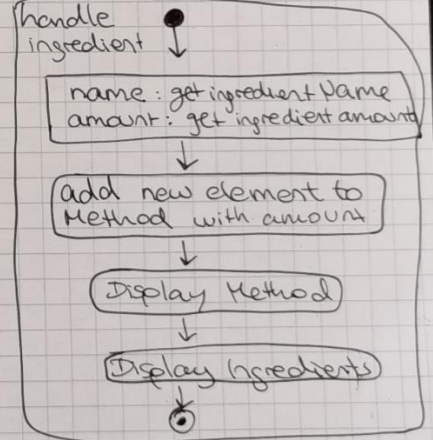 handle
ingredient
name : get ingredient Name
amount : get ingredient amount
add new element to
Method with amount
Display Method
Display Ingredients